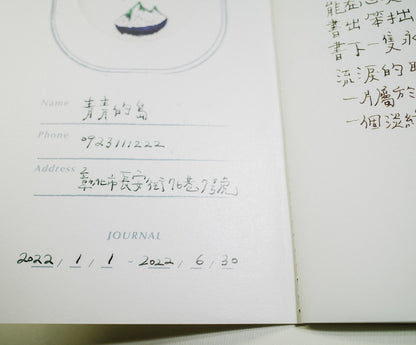 Name 青青的島
Phone 0923111222
Address 彰化市長安街76巷7號
JOURNAL
2022 / 1 / 1 - 2022 / 6 / 30
書下一隻永
流淚的
一片屬於
一個淡綠